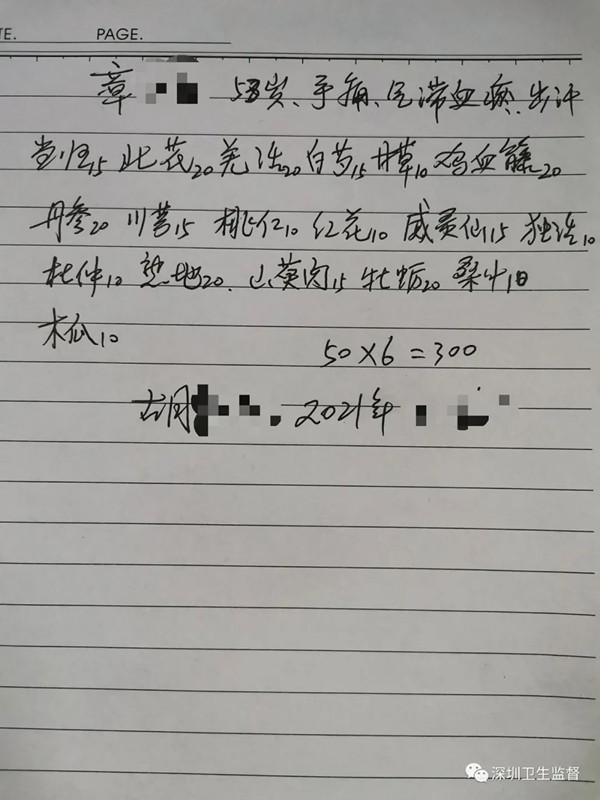 TE. PAGE.
章 58岁、手痛、气滞血瘀、出汗
当归15 北花20 羌活20 白芍15 丹草10 鸡血藤20
丹参20 川芎15 桃仁10 红花10 威灵仙15 独活10
杜仲10 熟地20 山萸肉15 牡蛎20 桑叶10
木瓜10
50×6=300
2021年
深圳卫生监督